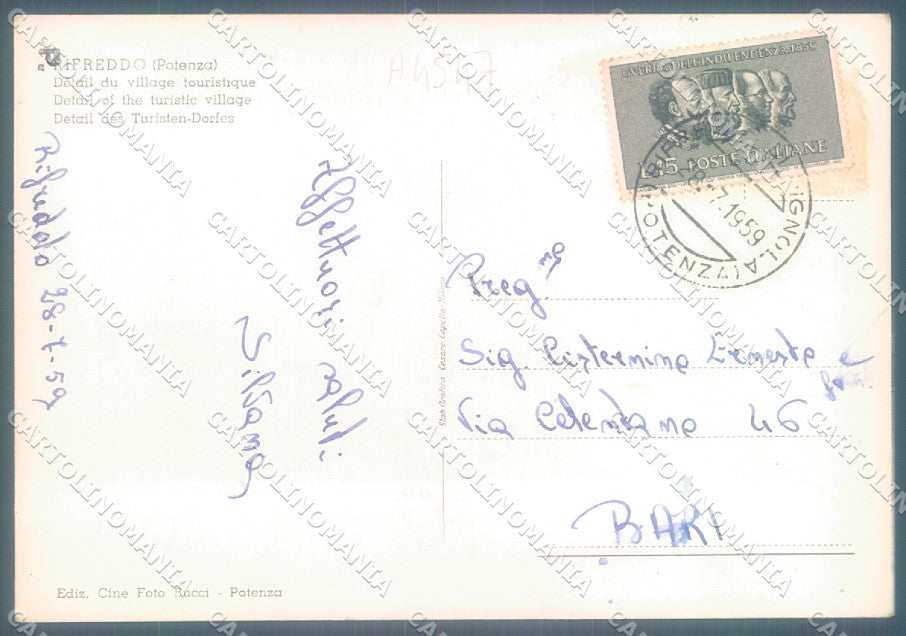 RIFREDDO (Potenza)
Détail du village touristique
Detail of the turistic village
Detail des Turisten-Dorfes
A4547
GUERRA DELL'INDIPENDENZA 1859
POSTE ITALIANE
PIGNOLA
28.-7.1959
(POTENZA)
Rifreddo 28-7-59
Affettuosi saluti
Silvana
Preg mo
Sig. Cisternino Ernesto e fam.
Via 46
BARI
Stab. Grafico Cesare Capello - Milano
Ediz. Cine Foto Rucci - Potenza
CARTOLINOMANIA